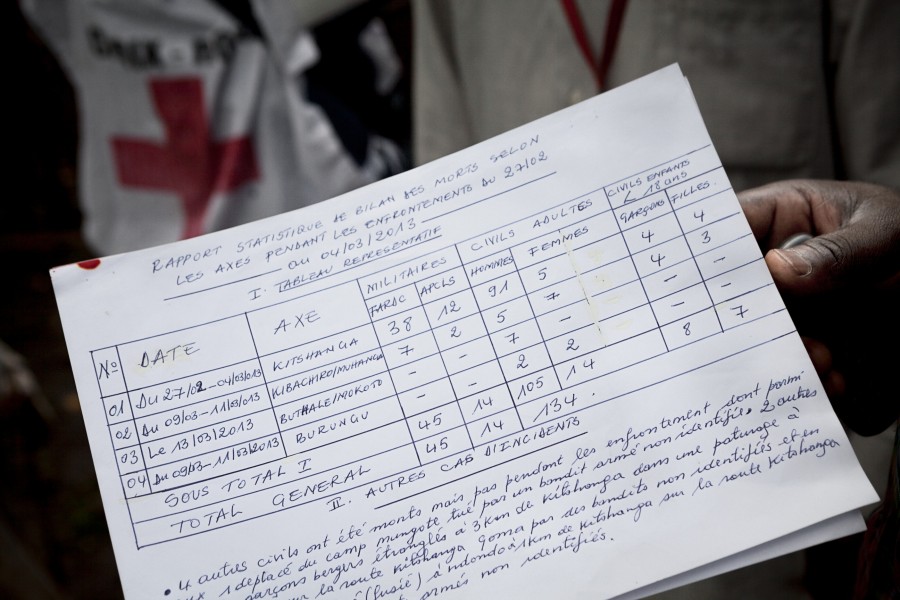 RAPPORT STATISTIQUE DE BILAN DES MORTS SELON
LES AXES PENDANT LES ENFRONTEMENTS DU 27/02
AU 04/03/2013
I. TABLEAU REPRESENTATIF
No DATE AXE MILITAIRES CIVILS ADULTES CIVILS ENFANTS < 18 ans
FARDC APCLS HOMMES FEMMES GARÇONS FILLES
01 DU 27/02-04/03/013 KITSHANGA 38 12 91 5 4 4
02 Du 09/03-11/03/013 KIBACHIRO/MUHANGA 7 2 5 7 4 3
03 Le 13/03/2013 BUTHALE/MOKOTO - - 7 - - -
04 Du 09/03-11/03/2013 BURUNGU - - 2 2 - -
SOUS TOTAL I 45 14 105 14 8 7
TOTAL GENERAL 45 14 134
II. AUTRES CAS D'INCIDENTS
• 4 autres civils ont été morts mais pas pendant les enfrontement dont parmi
eux 1 déplacé du camp mungote tué par un bandit armé non identifié. 2 autres
garçons bergers étranglés à 3km de Kitshanga dans une paturage à
sur la route Kitshanga Goma par des bandits non identifiés et en
(fusié) à ndondo à 1km de Kitshanga sur la route Kitshanga
armés non identifiés.